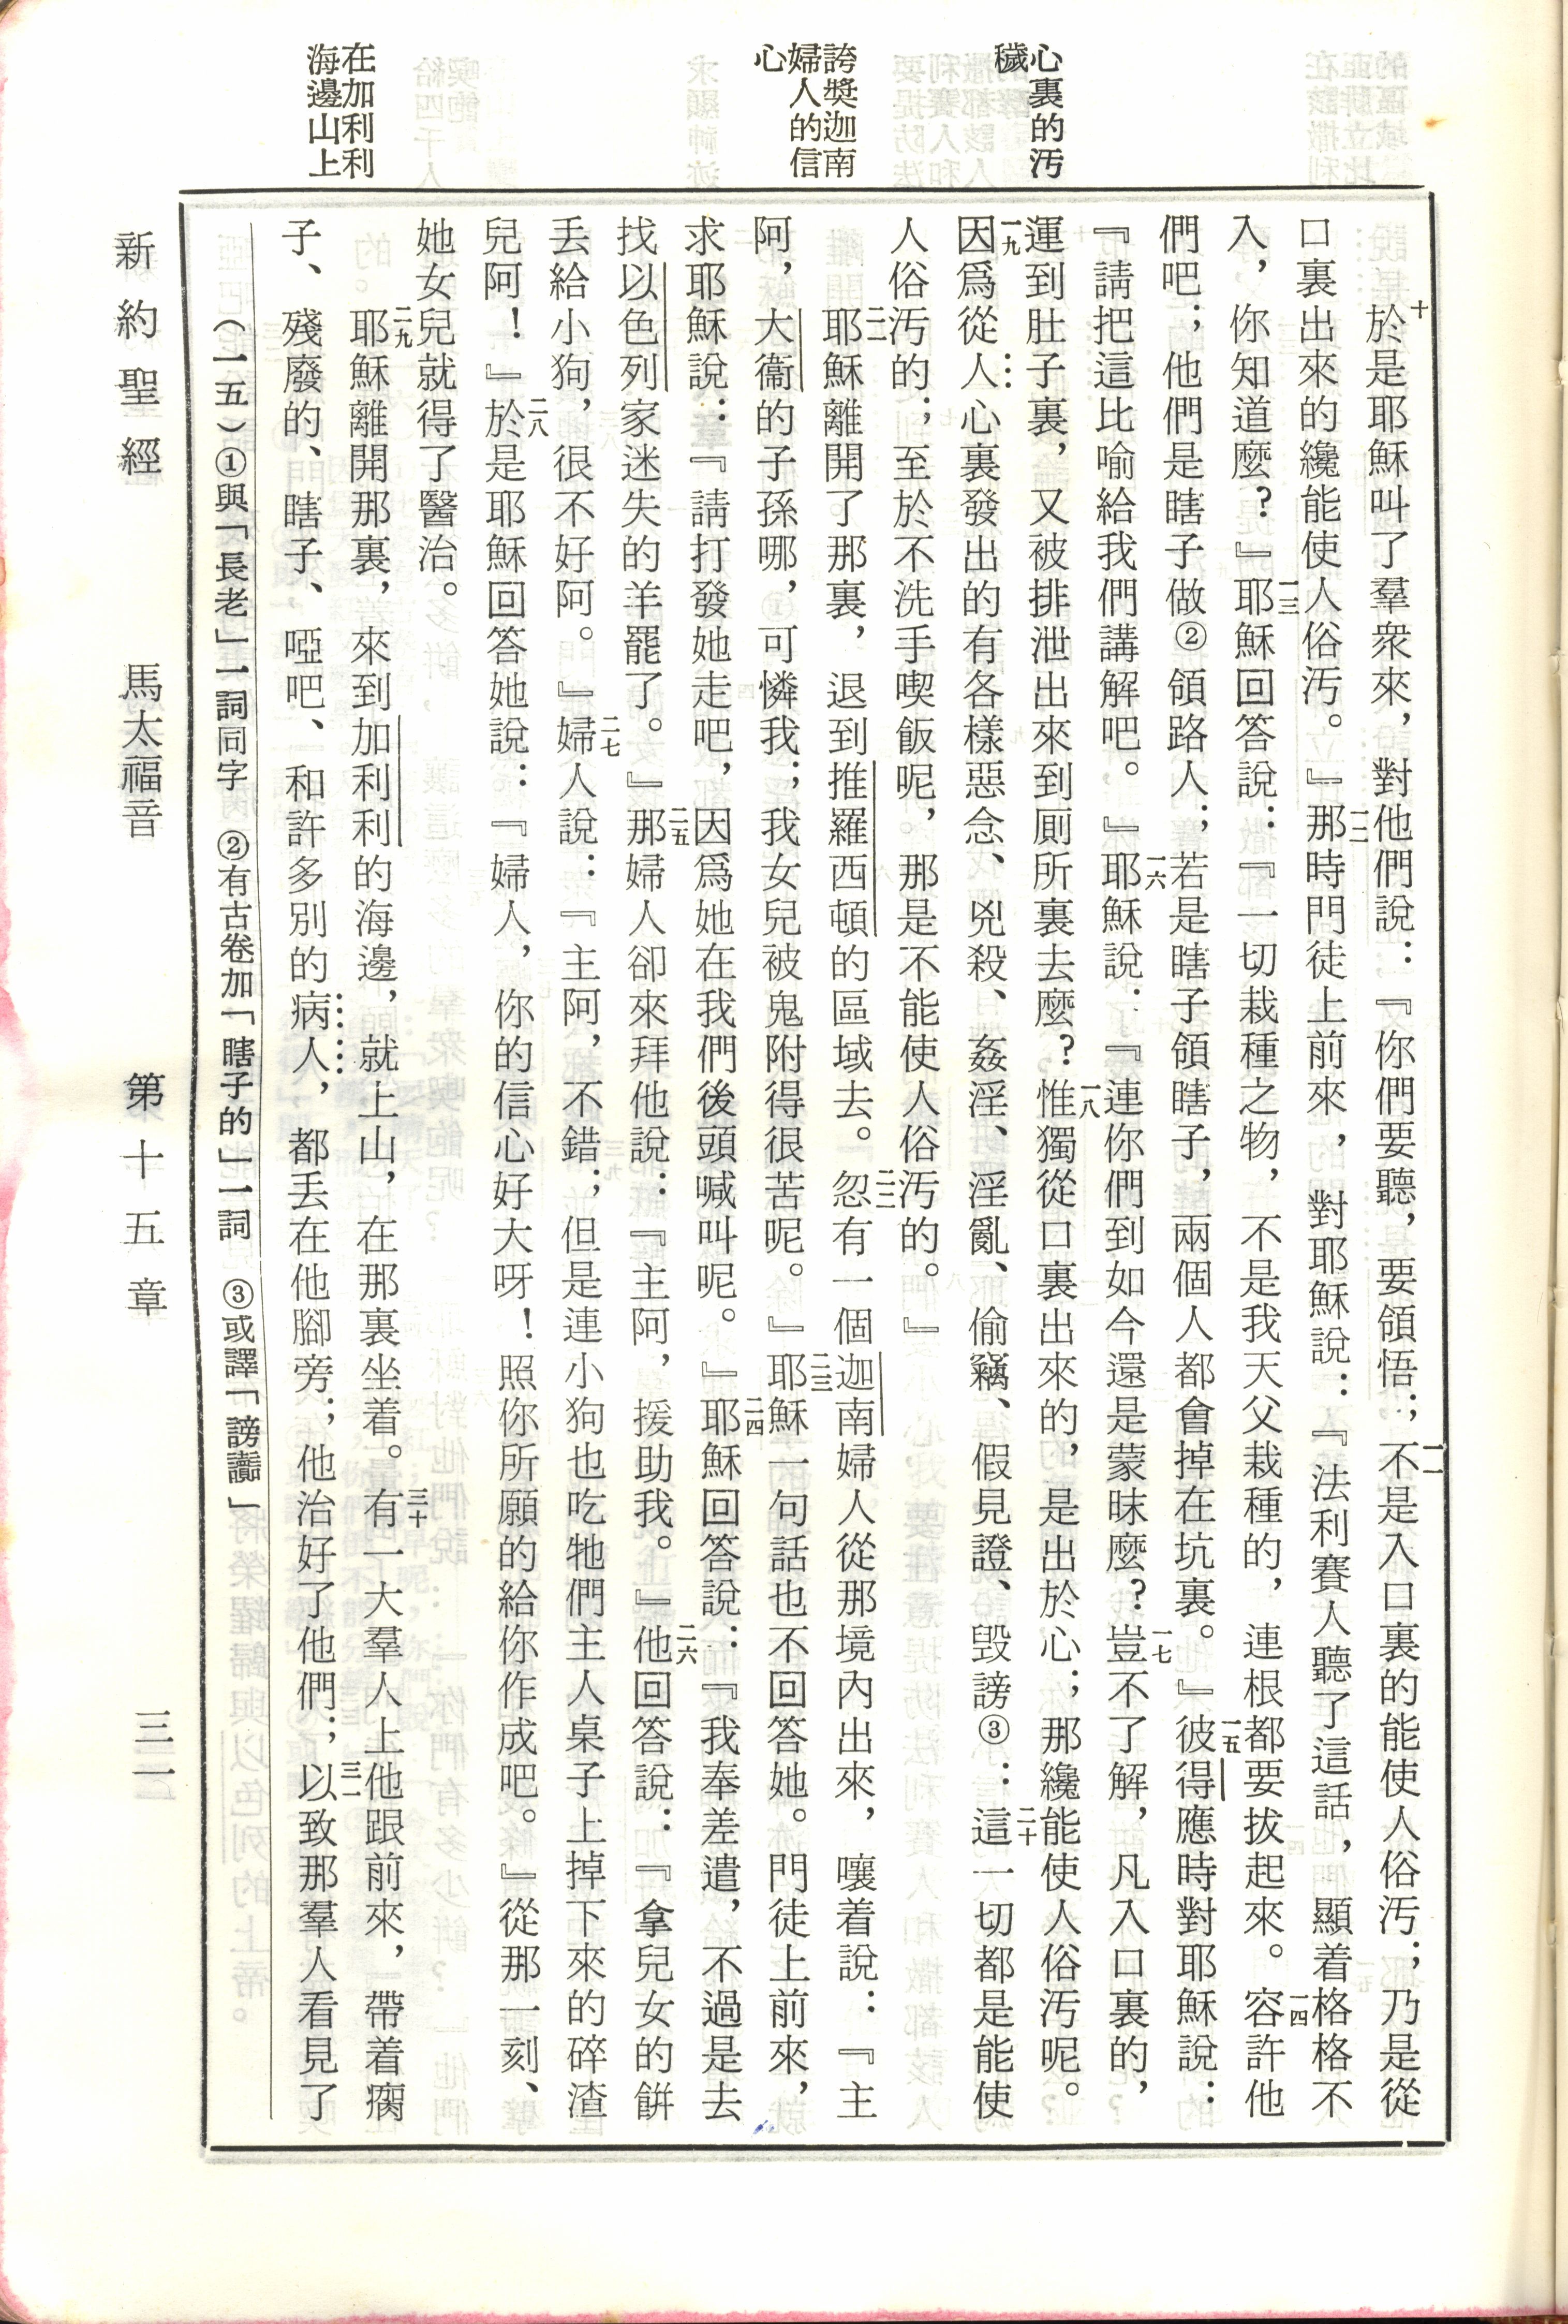 心裏的汚
穢
誇奬迦南
婦人的信
心
在加利利
海邊山上
十於是耶穌叫了羣衆來，對他們說：『你們要聽，要領悟；一一不是入口裏的能使人俗汚；乃是從
口裏出來的纔能使人俗汚。』一二那時門徒上前來，對耶穌說：『法利賽人聽了這話，顯着格格不
入，你知道麼？』一三耶穌回答說：『一切栽種之物，不是我天父栽種的，連根都要拔起來。一四容許他
們吧；他們是瞎子做②領路人；若是瞎子領瞎子，兩個人都會掉在坑裏。』一五彼得應時對耶穌說：
『請把這比喻給我們講解吧。』一六耶穌說：『連你們到如今還是蒙昧麼？一七豈不了解，凡入口裏的，
運到肚子裏，又被排泄出來到厠所裏去麼？一八惟獨從口裏出來的，是出於心；那纔能使人俗汚呢。
一九因爲從人心裏發出的有各樣惡念、兇殺、姦淫、淫亂、偷竊、假見證、毀謗③：二十這一切都是能使
人俗汚的；至於不洗手喫飯呢，那是不能使人俗汚的。』
二一耶穌離開了那裏，退到推羅西頓的區域去。二二忽有一個迦南婦人從那境內出來，嚷着說：『主
阿，大衞的子孫哪，可憐我；我女兒被鬼附得很苦呢。』二三耶穌一句話也不回答她。門徒上前來，
求耶穌說：『請打發她走吧，因爲她在我們後頭喊叫呢。』二四耶穌回答說：『我奉差遣，不過是去
找以色列家迷失的羊罷了。』二五那婦人卻來拜他說：『主阿，援助我。』二六他回答說：『拿兒女的餅
丢給小狗，很不好阿。』二七婦人說：『主阿，不錯；但是連小狗也吃牠們主人桌子上掉下來的碎渣
兒阿！』二八於是耶穌回答她說：『婦人，你的信心好大呀！照你所願的給你作成吧。』從那一刻、
她女兒就得了醫治。
二九耶穌離開那裏，來到加利利的海邊，就上山，在那裏坐着。三十有一大羣人上他跟前來，帶着瘸
子、殘廢的、瞎子、啞吧、和許多別的病人，都丢在他腳旁；他治好了他們；三一以致那羣人看見了
（一五）①與「長老」一詞同字　②有古卷加「瞎子的」一詞　③或譯「謗讟」
新約聖經　馬太福音　第十五章　三一